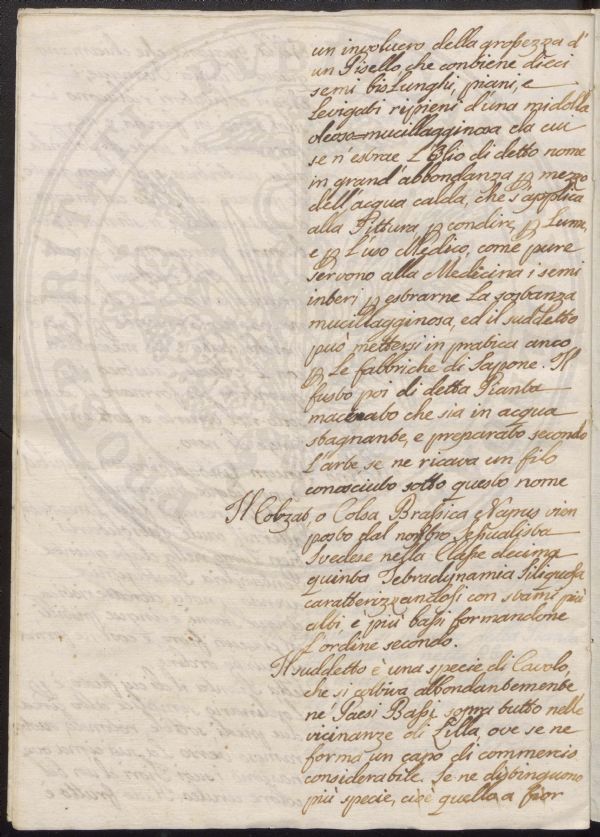 un involucro della grossezza d'
un Pisello, che contiene dieci
semi bislunghi, piani, e
Levigati ripieni d'una midolla
oleoso=mucillagginosa da cui
se n'estrae L'Olio di detto nome
in grand'abbondanza p mezzo
dell'acqua calda, che s'applica
alla Pittura, p condire, p Lume,
e p L'uso Medico, come pure
servono alla Medicina i semi
interi p estrarne La sostanza
mucillagginosa, ed il suddetto
può mettersi in pratica anco
p Le fabbriche di Sapone. Il
fusto poi di detta Pianta
macerato che sia in acqua
stagnante, e preparato secondo
L'arte se ne ricava un filo
conosciuto sotto questo nome
Il Colzat, o Colsa, Brassica e Napus vien
posto dal nostro Sessualista
Svedese nella Classe decima
quinta Tetradynamia Siliquosa
caratterizzandosi con stami più
alti e più bassi formandone
L'ordine secondo.
Il suddetto è una specie di Cavolo,
che si coltiva abbondantemente
ne' Paesi Bassi, sopra tutto nelle
vicinanze di Lilla, ove se ne
forma un capo di commercio
considerabile. Se ne distinguono
più specie, cioè quella a fior